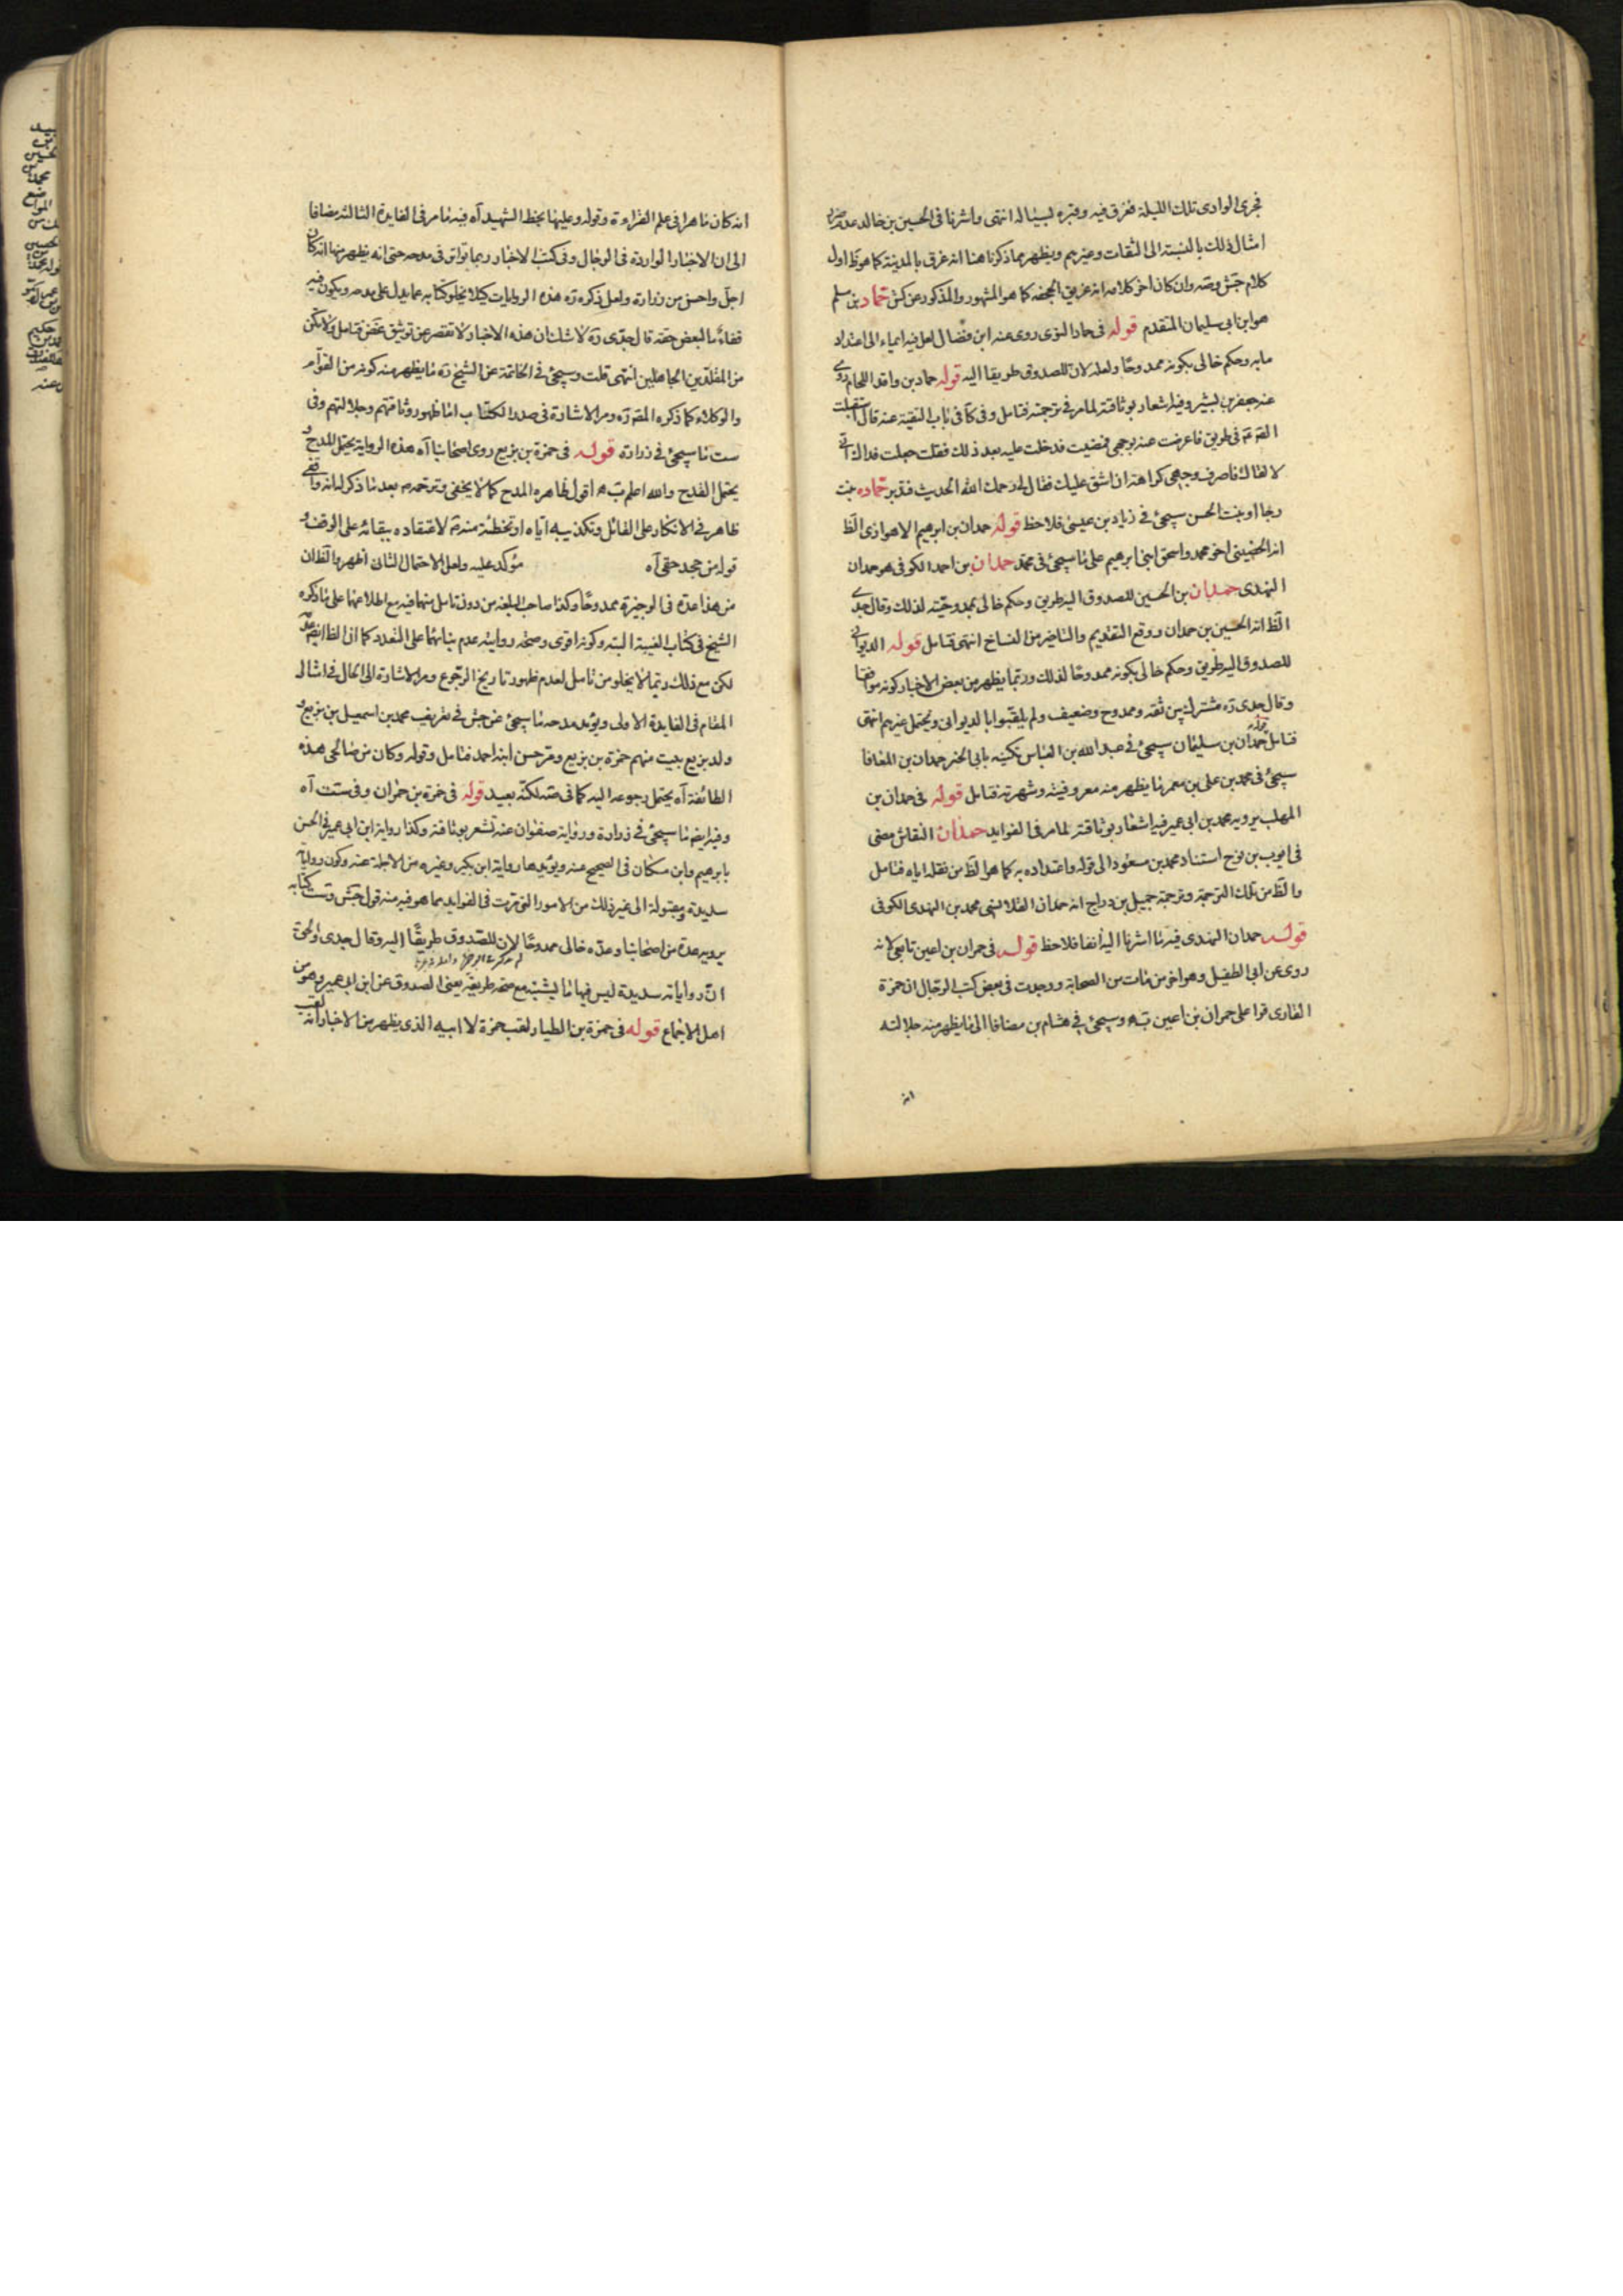 فجرى الوادى تلك الليلة فغرق فيه وقبره بسيالة انتهى واشرنا فى الحسين بن خالد عدم
امثال ذلك بالنسبة الى الثقات وغيرهم ويظهر مما ذكرنا هنا انه غرق بالمدينة كما هو ظ اول
كلام جش وصه وان كان اخر كلامه انه غريق الجحفه كما هو المشهور والمذكور عن كش حماد بن مسلم
هو ابن ابى سليمان المتقدم قوله فى حماد النوى روى عنه ابن فضال لعل فيه ايماء الى اعتداد
مابه وحكم خالى بكونه ممدوحا ولعله لان للصدوق طريقا اليه قوله حماد بن واقد اللحام روى
عنه جعفر بن بشير وفيه اشعار بوثاقته لمامر فى ترجمته فتامل وفى كا فى باب التقية عنه قال استقبلت
الصق فى طريق فاعرضت عنه بوجهى فمضيت فدخلت عليه بعد ذلك فقلت جعلت فداك انى
لا لقاك فاصرف وجهى كراهة ان اشق عليك فقال لى رحمك الله الحديث فتدبر حماده بنت
رجا او بنت الحسن سيجئ فى زياد بن عيسى فلاحظ قوله حمدان بن ابرهيم الاهوازى الظ
انه الحضينى اخو محمد واسحق ابنى ابرهيم على ما سيجئ فى محمد حمدان بن احمد الكوفى هو حمدان
النهدى حمدان بن الحسين للصدوق اليه طريق وحكم خالى بممدوحيته لذلك وقال جدى
الظ انه الحسين بن حمدان ووقع التقديم والتاخير من النساخ انتهى فتامل قوله الديوانى
للصدوق اليه طريق وحكم خالى بكونه ممدوحا لذلك وربما يظهر من بعض الاخبار كونه موافقا
وقال جدى ره مشترك بين ثقة وممدوح وضعيف ولم يلقبوا بالديوانى ويحتمل غيرهم انتهى
فتامل حمدان بن سليمان سيجئ فى عبد الله بن العباس تكنيه بابى الخير حمدان بن المعافا
سيجئ فى محمد بن على بن معمر ما يظهر منه معروفيته وشهرته فتامل قوله فى حمدان بن
المهلب يرويه محمد بن ابى عمير فيه اشعار بوثاقته لمامر فى الفوايد حمدان النقاش مضى
فى ايوب بن نوح استناد محمد بن مسعود الى قوله واعتداده به كما هو الظ من نقله اياه فتامل
والظ من تلك الترجمة وترجمة جميل بن دراج انه حمدان القلانسى محمد بن النهدى الكوفى
قوله حمدان النهدى فيه ما اشرنا اليه انفا فلاحظ قوله فى حمران بن اعين تابعى لانه
روى عن ابى الطفيل وهو اخر من مات من الصحابة ووجدت فى بعض كتب الرجال ان حمزة
القارى قرا على حمران بن اعين وسيجئ فى هشام بن مضافا الى ما يظهر منه جلالته
انه
انه كان ماهرا فى علم القراءة وقوله وعليها بخط الشهيد آه فيه مامر فى الفايدة الثالثة مضافا
الى ان الاخبار الواردة فى الرجال وفى كتب الاخبار ربما تواتر فى مدحه حتى انه يظهر منها انه كان
اجل واحسن من زرارة ولعل ذكره ره هذه الروايات كيلا يخلو كتابه عما يدل على مدحه ويكون فيه
قضاء ما لبعض حقه قال جدى ره لا شك ان هذه الاخبار لا تقصر عن توثيق فتامل ولا تكن
من المقلدين الجاهلين انتهى قلت وسيجئ فى الخاتمة عن الشيخ ره ما يظهر منه كونه من القوام
والوكلاء كما ذكره المقره ومر الاشارة فى صدر الكتاب اما ظهور وثاقتهم وجلالتهم وفى
ست ما سيجئ فى زرارة قوله فى حمزة بن بزيع روى اصحابنا آه هذه الرواية يحتمل المدح و
يحتمل القدح والله اعلم اقول ظاهره المدح كما لا يخفى وترحمه بعد ما ذكر له انه واقفى
ظاهر فى الانكار على القائل وتكذيبه اياه او تخطئة منه لاعتقاده ببقائه على الوقف و
قوله من جحد حقى آه مؤكد عليه ولعل الاحتمال الثانى اظهر والظ ان
من هذا عده فى الوجيزة ممدوحا وكذا صاحب البلغة من دون تامل منهما فيه مع اطلاعهما على ما ذكره
الشيخ فى كتاب الغيبة البته وكونه اقوى وصحة روايته عدم بنائهما على التعدد كما ان الظ ايضا عدمه
لكن مع ذلك ربما لا يخلو من تامل لعدم ظهور تاريخ الرجوع ومر الاشارة الى الحال فى امثال
المقام فى الفايدة الاولى ويؤيد مدحه ما سيجئ عن جش فى تعريف محمد بن اسمعيل بن بزيع و
ولد بزيع بيت منهم حمزة بن بزيع ومر حسن ابنه احمد فتامل وقوله وكان من صالحى هذه
الطائفة آه يحتمل رجوعه اليه كما فى صه لكنه بعيد قوله فى حمزة بن حمران وفى ست آه
وفيه ايضا ما سيجئ فى زرارة ورواية صفوان عنه تشعر بوثاقته وكذا رواية ابن ابى عمير فى الحسن
بابرهيم وابن مسكان فى الصحيح عنه ويؤيدها رواية ابن بكير وغيره من الاجلة عنه وكون رواياته
سديدة ومقبولة الى غير ذلك من الامور التى مرت فى الفوايد مما هو فيه منه قول جش وست كتابه
يرويه عدة من اصحابنا وعده خالى ممدوحا لان للصدوق طريقا اليه وقال جدى والحق
ان رواياته سديدة ليس فيها ما يشينه مع صحة طريقه يعنى الصدوق عن ابن ابى عمير وهو من
اهل الاجماع قوله فى حمزة بن الطيار لقب حمزة لا ابيه الذى يظهر من الاخبار انه لقب